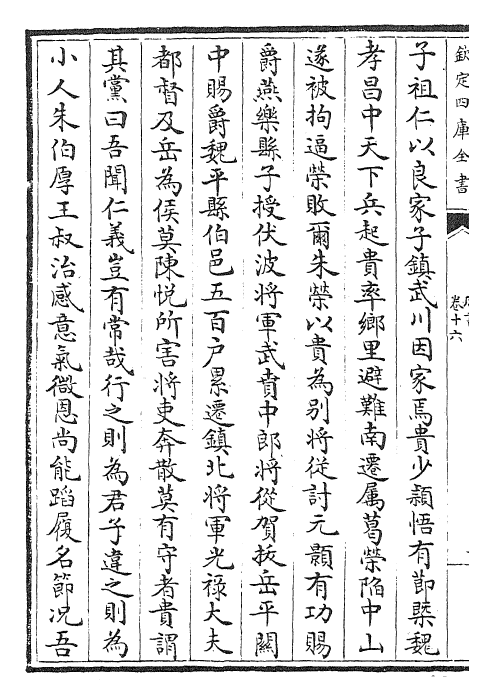 欽定四庫全書
卷十六
子祖仁以良家子鎮武川因家焉貴少穎悟有節槩魏
孝昌中天下兵起貴率鄉里避難南遷属葛榮陷中山
遂被拘逼榮敗爾朱榮以貴為别將從討元顥有功賜
爵燕樂縣子授伏波將軍武賁中郎將從賀拔岳平關
中賜爵魏平縣伯邑五百户累遷鎮北將軍光禄大夫
都督及岳為侯莫陳悦所害將吏奔散莫有守者貴謂
其黨曰吾聞仁義豈有常哉行之則為君子違之則為
小人朱伯厚王叔治感意氣微恩尚能蹈履名節况吾